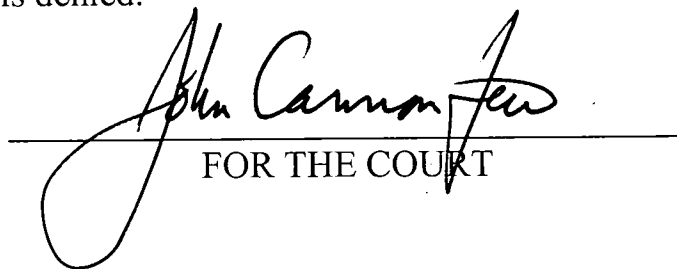 is denied.
John Cannon Few
FOR THE COURT